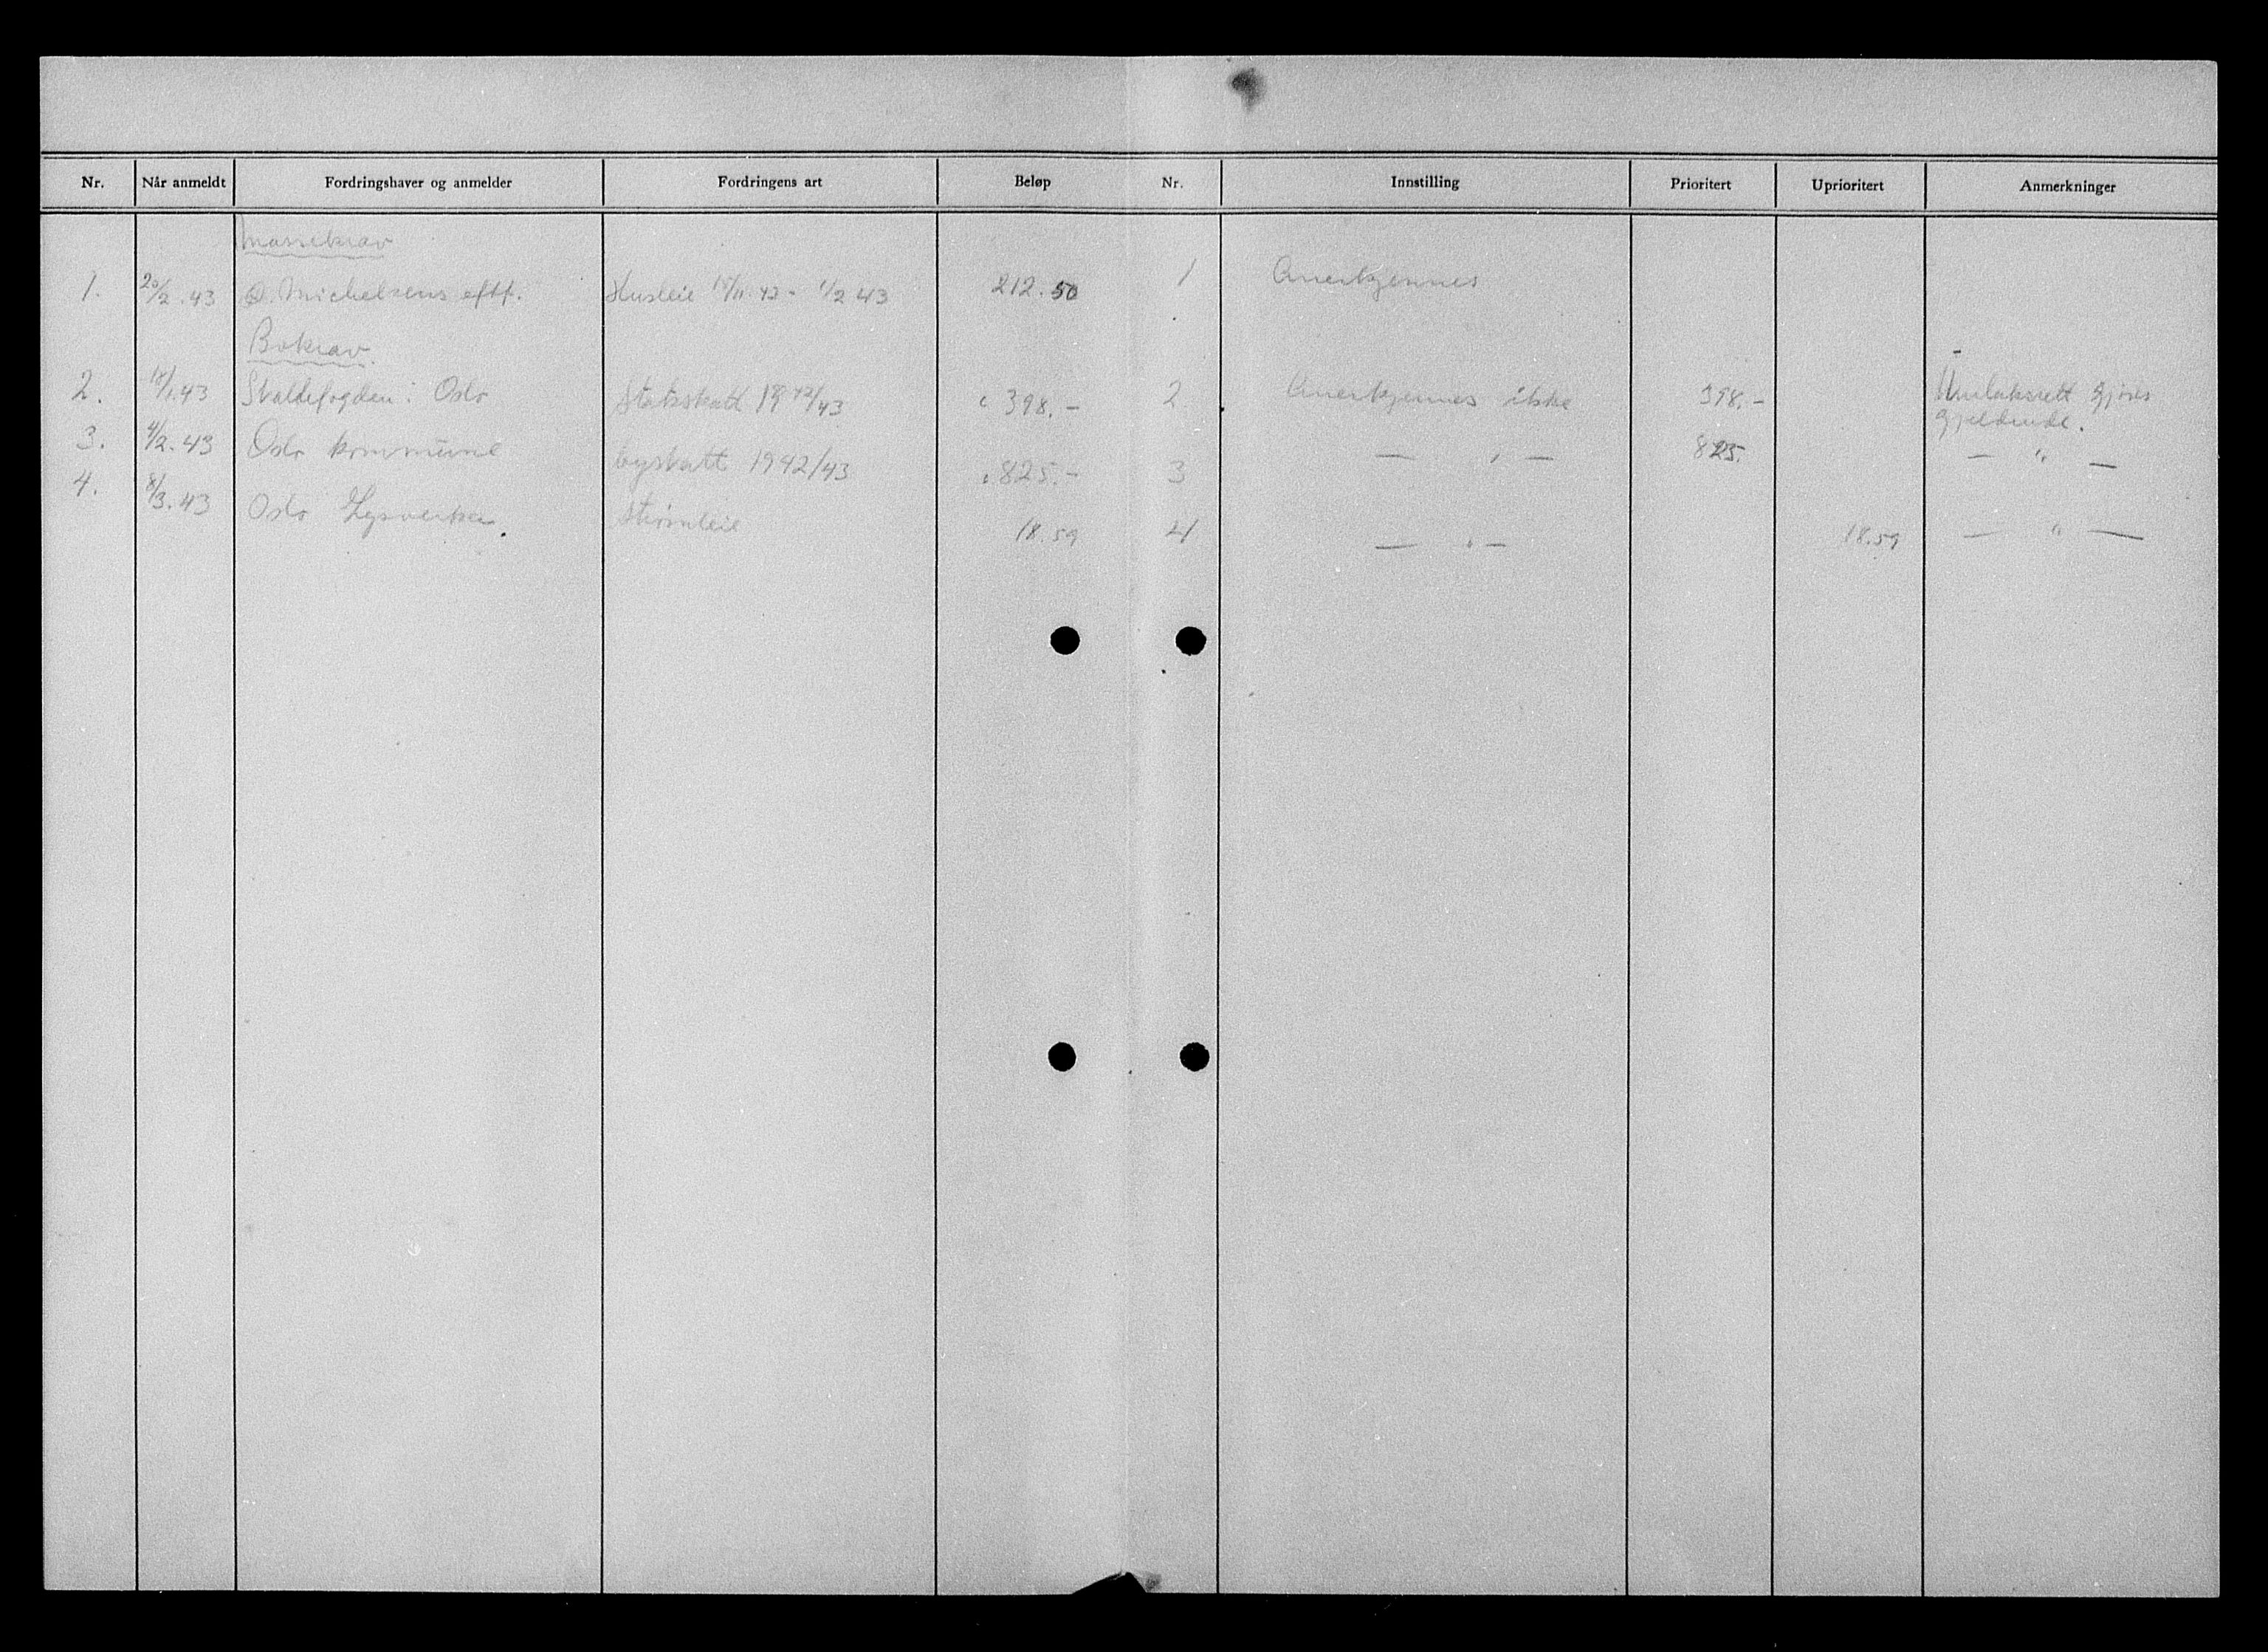 Nr. Når anmeldt Fordringshaver og anmelder Fordringens art Beløp Nr. Innstilling Prioritert Uprioritert Anmerkninger
Massekrav
1. 20/2.43 O. Michelsens eftf. Husleie 15/11.42 - 1/2 43 212.50 1 Anerkjennes
Bokrav.
2. 18/1.43 Skattefogden i Oslo Statsskatt 1942/43 " 398.- 2 Anerkjennes ikke 398.- Avslaksrett gjøres
gjeldende.
3. 4/2.43 Oslo kommune byskatt 1942/43 " 825.- 3 — " — 825.- — " —
4. 8/3.43 Oslo Lysverker. Strømleie 18.59 4 — " — 18.59 — " —